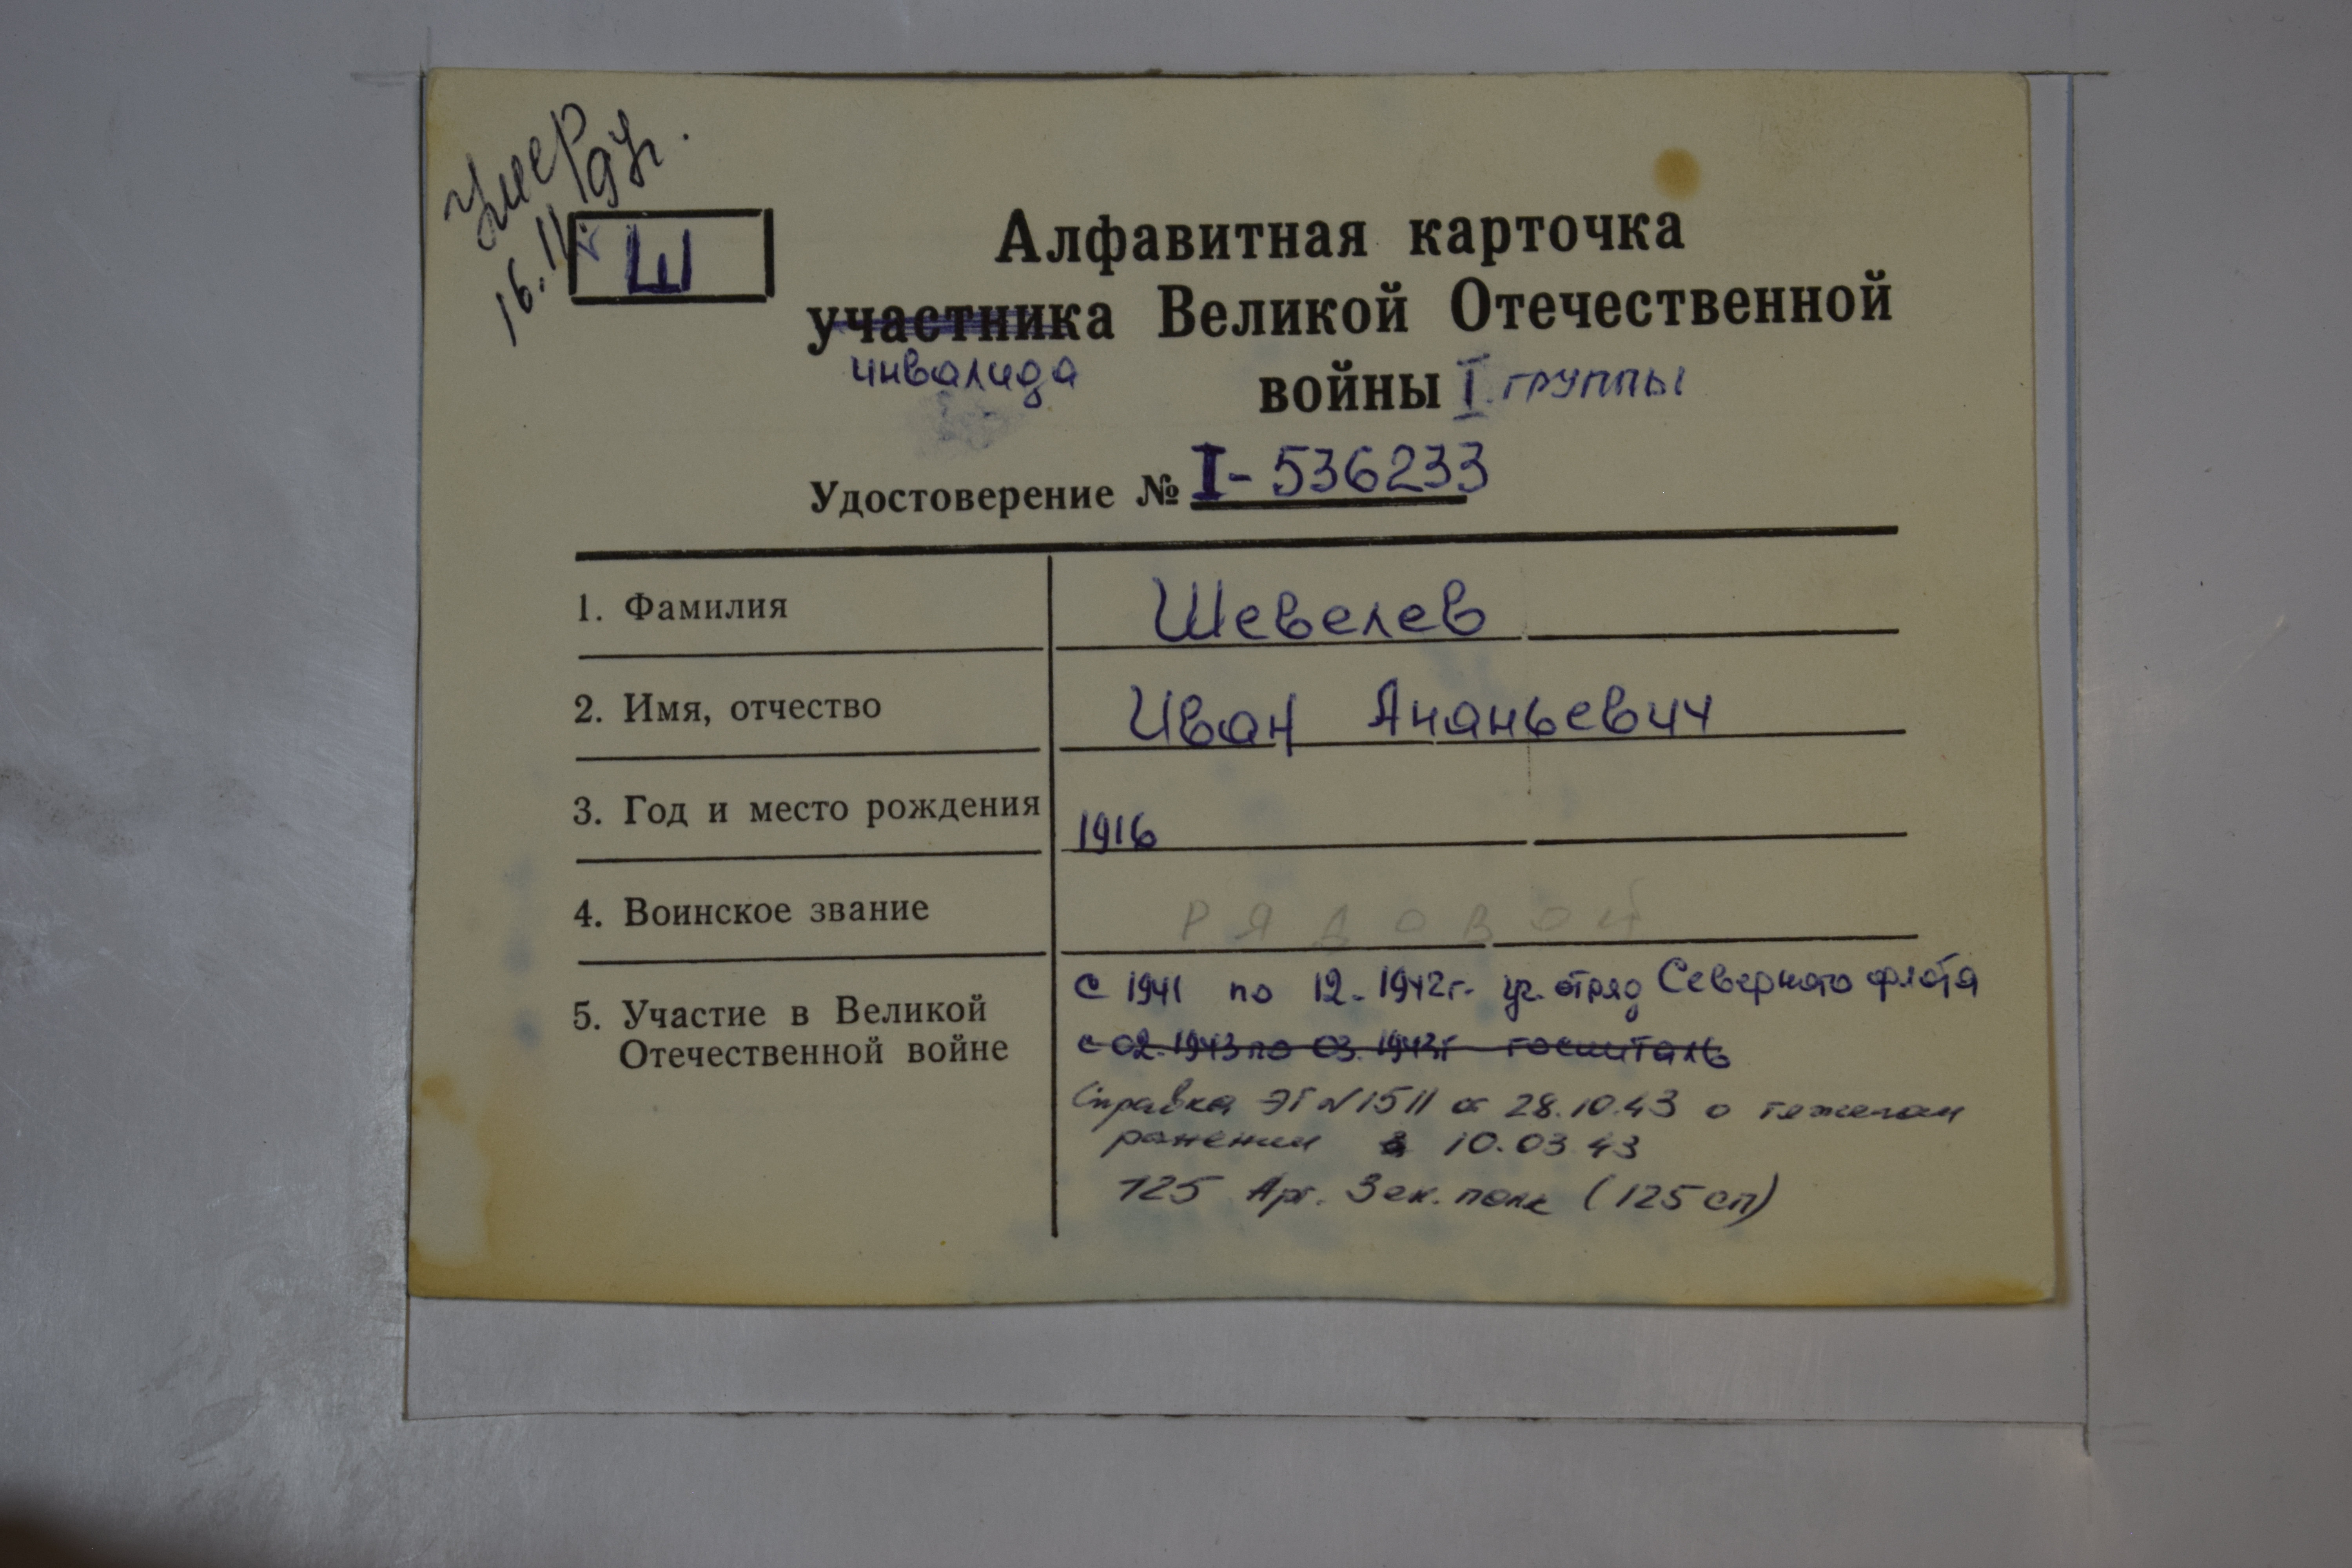 Умер
16.11.97г.
Ш
Алфавитная карточка
участника Великой Отечественной
инвалида
войны I группы
Удостоверение № I-536233
1. Фамилия Шевелев
2. Имя, отчество Иван Ананьевич
3. Год и место рождения 1916
4. Воинское звание РЯДОВОЙ
5. Участие в Великой Отечественной войне
с 1941 по 12.1942г. уч. отряд Северного флота
с 02.1943 по 03.1943г госпиталь
Справка ЭГ №1511 от 28.10.43 о тяжелом
ранении 10.03.43
125 Арт. Зен. полк (125 сп)